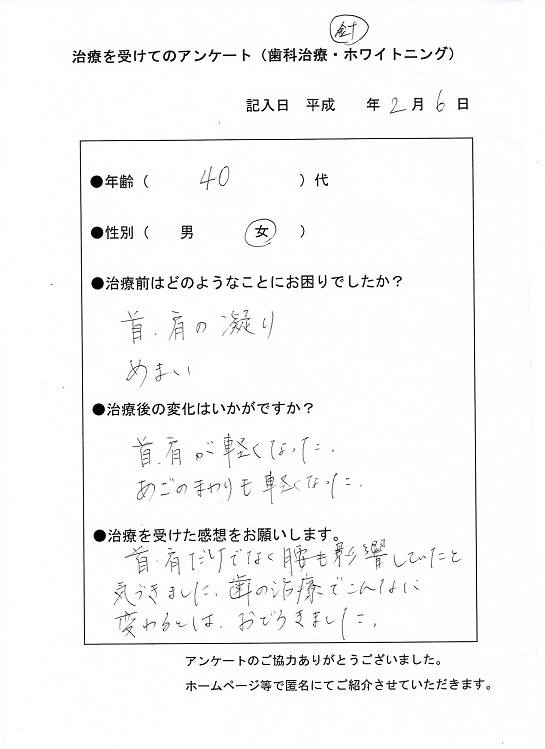 針
治療を受けてのアンケート（歯科治療・ホワイトニング）
記入日 平成 年 2 月 6 日
●年齢（ 40 ）代
●性別（ 男 女 ）
●治療前はどのようなことにお困りでしたか？
首、肩の凝り
めまい
●治療後の変化はいかがですか？
首、肩が軽くなった。
あごのまわりも軽くなった。
●治療を受けた感想をお願いします。
首、肩だけでなく腰も影響していたと
気づきました。歯の治療でこんなに
変わるとは、おどろきました。
アンケートのご協力ありがとうございました。
ホームページ等で匿名にてご紹介させていただきます。